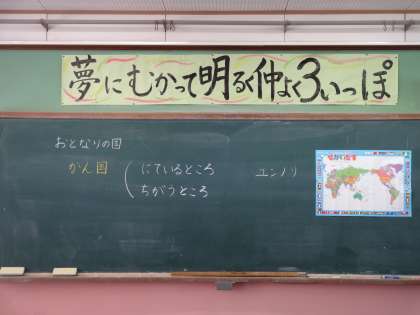 夢にむかって明るく仲よく3いっぽ
おとなりの国
かん国
にているところ
ちがうところ
ユンノリ
せかいちず